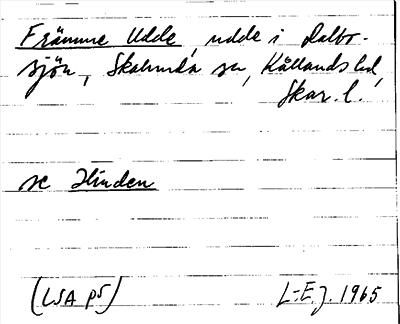 Främme Udde, udde i Dalbo-
sjön, Skalunda sn, Kållands hd,
Skar. l.
se Hinden
(LSA P5)
L-E. J. 1965